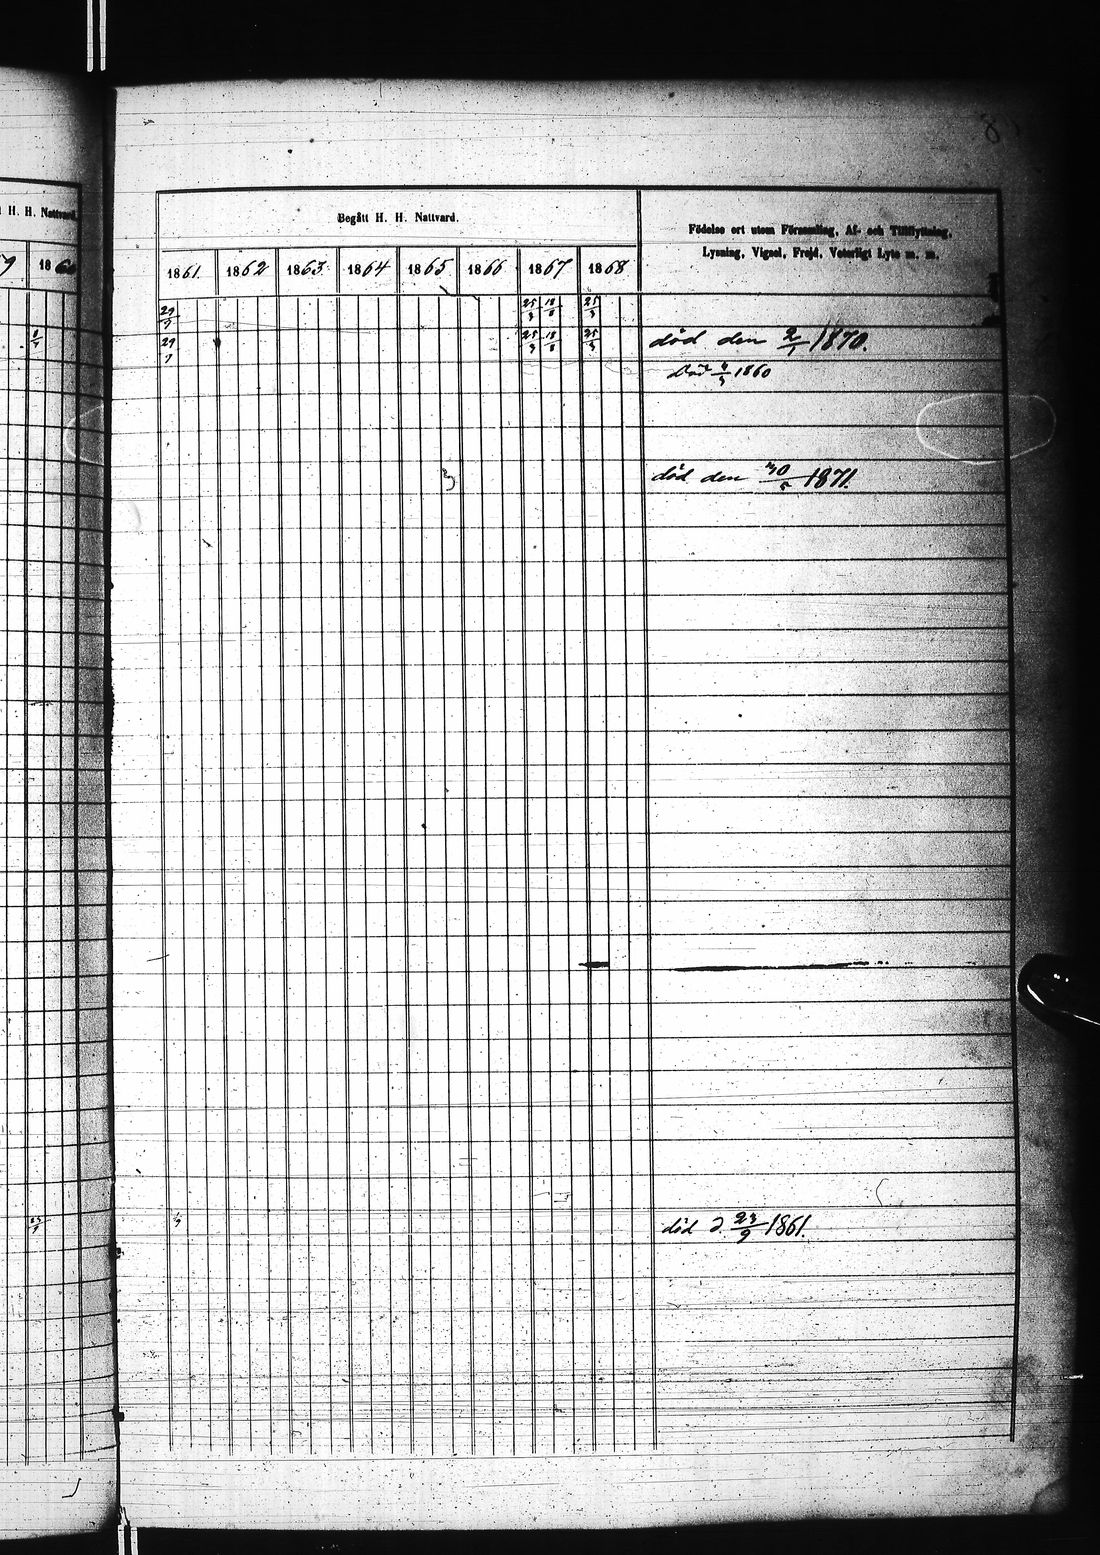 H. H. Nattvard.
Begått H. H. Nattvard.
Födelse ort utom Församling, Af- och Tillflyttning,
Lysning, Vigsel, Frejd, Veterligt Lyte m. m.
9 1860 1861 1862 1863 1864 1865 1866 1867 1868
29/7 25/3 18/8 25/3
29/7 25/3 18/8 25/3 död den 2/1 1870.
Död 1860
död den 30/5 1871.
död d. 23/9 1861.